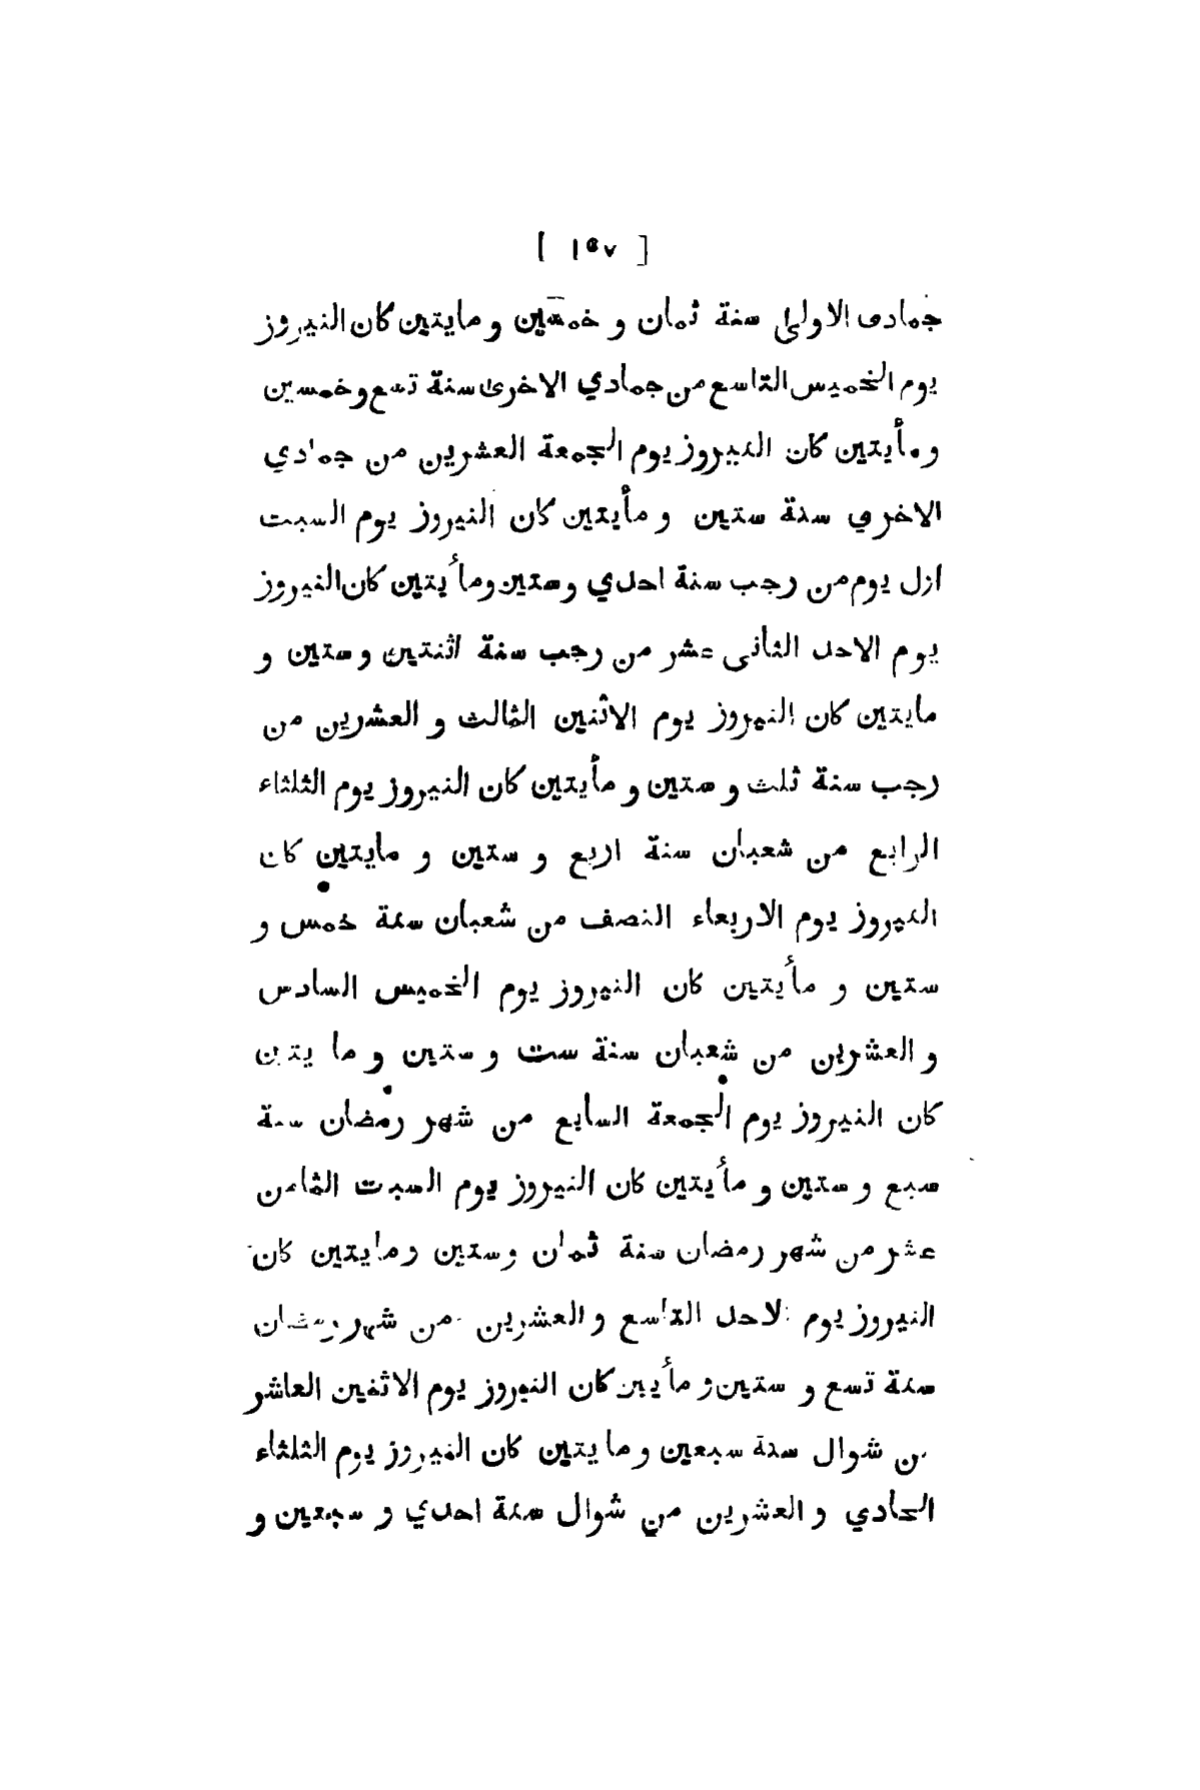 [ ١٥٧ ]
جمادى الاولى سنة ثمان و خمسين و مايتين كان النيروز
يوم الخميس التاسع من جمادي الاخرى سنة تسع و خمسين
و مأيتين كان النيروز يوم الجمعة العشرين من جمادي
الاخري سنة ستين و مأيتين كان النيروز يوم السبت
ازل يوم من رجب سنة احدي و ستين و مأيتين كان النيروز
يوم الاحد الثاني عشر من رجب سنة اثنتين و ستين و
مايتين كان النيروز يوم الاثنين الثالث و العشرين من
رجب سنة ثلث و ستين و مأيتين كان النيروز يوم الثلثاء
الرابع من شعبان سنة اربع و ستين و مايتين كان
النيروز يوم الاربعاء النصف من شعبان سنة خمس و
ستين و مأيتين كان النيروز يوم الخميس السادس
و العشرين من شعبان سنة ست و ستين و ما يتين
كان النيروز يوم الجمعة السابع من شهر رمضان سنة
سبع و ستين و مأيتين كان النيروز يوم السبت الثامن
عشر من شهر رمضان سنة ثمان وستين ومايتين كان
النيروز يوم الاحد التاسع و العشرين من شهر رمضان
سنة تسع و ستين و مأيين كان النيروز يوم الاثنين العاشر
من شوال سنة سبعين و ما يتين كان النيروز يوم الثلثاء
الحادي و العشرين من شوال سنة احدي و سبعين و